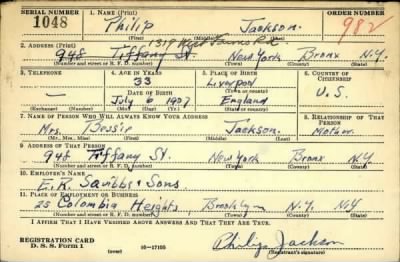 SERIAL NUMBER 1. NAME (Print) ORDER NUMBER
1048 Philip Jackson 982
(First) (Middle) (Last)
1319 West Farms Rd.
2. ADDRESS (Print)
948 Tiffany St. New York Bronx N.Y.
(Number and street or R. F. D. number) (Town) (County) (State)
3. TELEPHONE 4. AGE IN YEARS 5. PLACE OF BIRTH 6. COUNTRY OF CITIZENSHIP
— 33 Liverpool U.S.
DATE OF BIRTH (Town or county)
July 6 1907 England
(Exchange) (Number) (Mo.) (Day) (Yr.) (State or country)
7. NAME OF PERSON WHO WILL ALWAYS KNOW YOUR ADDRESS 8. RELATIONSHIP OF THAT PERSON
Mrs. Bessie Jackson Mother
(Mr., Mrs., Miss) (First) (Middle) (Last)
9. ADDRESS OF THAT PERSON
948 Tiffany St. New York Bronx N.Y
(Number and street or R. F. D. number) (Town) (County) (State)
10. EMPLOYER'S NAME
E. R. Squibb & Sons
11. PLACE OF EMPLOYMENT OR BUSINESS
25 Colombia Heights, Brooklyn N.Y. N.Y
(Number and street or R. F. D. number) (Town) (County) (State)
I AFFIRM THAT I HAVE VERIFIED ABOVE ANSWERS AND THAT THEY ARE TRUE.
REGISTRATION CARD
D. S. S. Form 1 (over) 16—17105 Philip Jackson
(Registrant's signature)